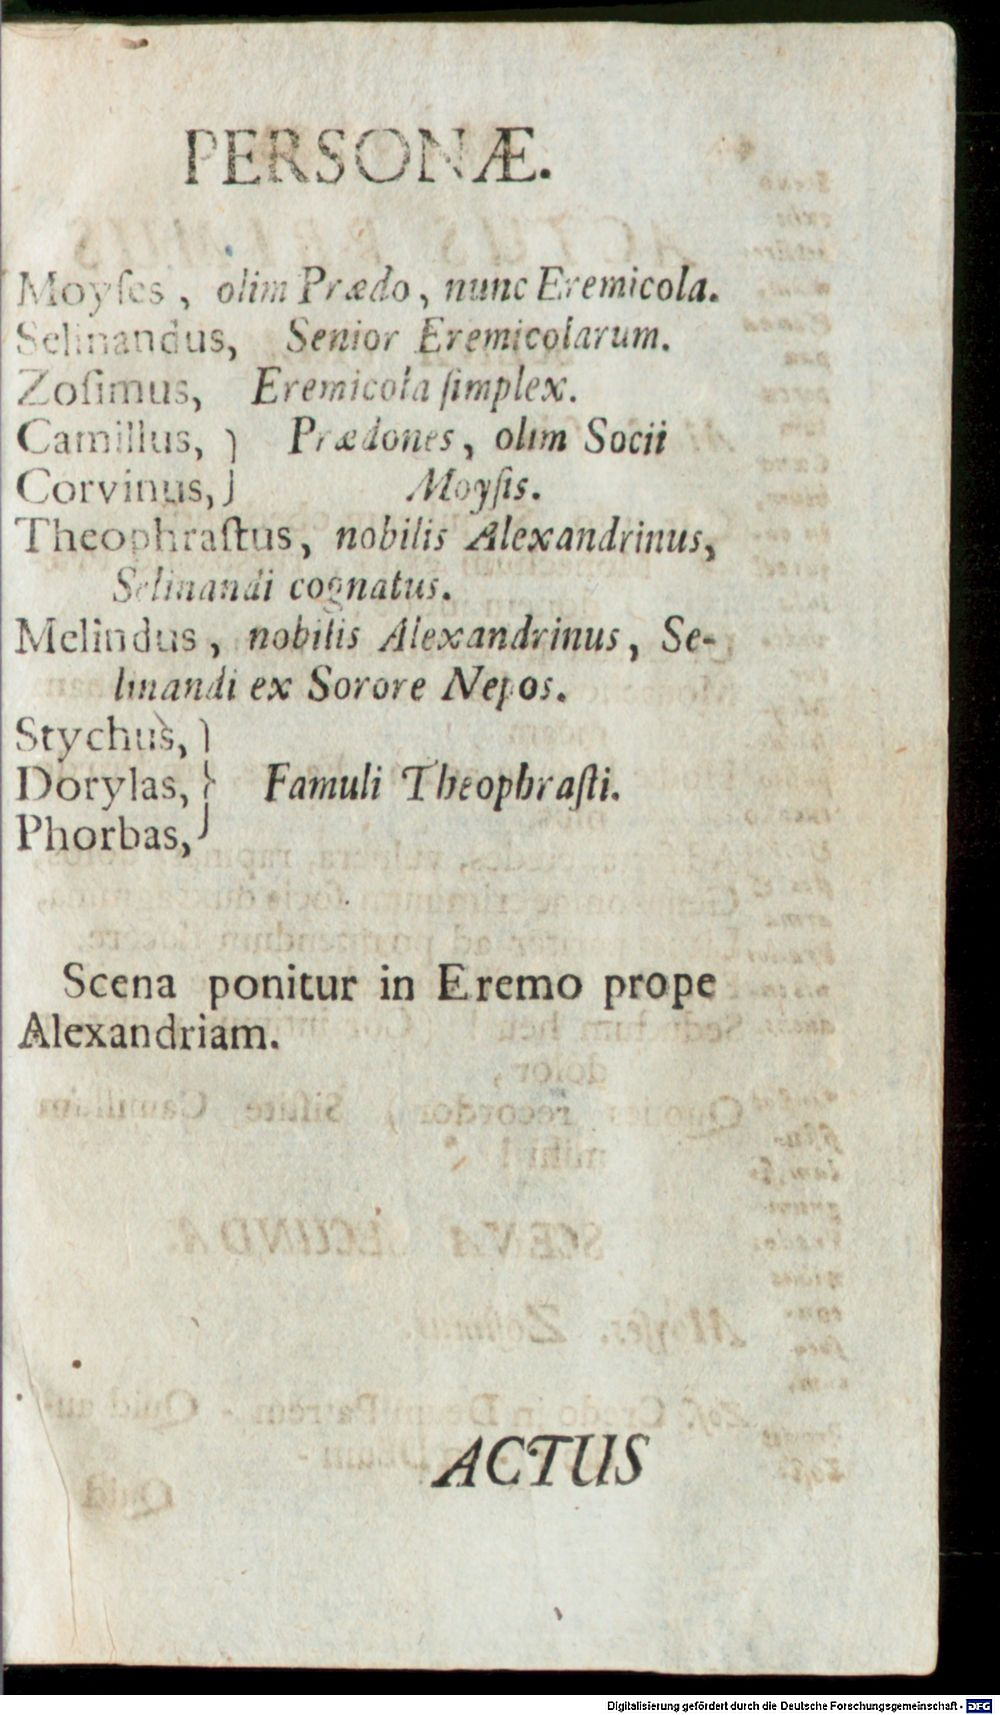 PERSONÆ.
Moyſes, olim Prædo, nunc Eremicola.
Selinandus, Senior Eremicolarum.
Zoſimus, Eremicola ſimplex.
Camillus, } Prædones, olim Socii
Corvinus, } Moyſis.
Theophraſtus, nobilis Alexandrinus,
Selinandi cognatus.
Melindus, nobilis Alexandrinus, Se-
linandi ex Sorore Nepos.
Stychus, }
Dorylas, } Famuli Theophraſti.
Phorbas, }
Scena ponitur in Eremo prope
Alexandriam.
ACTUS
Digitalisierung gefördert durch die Deutsche Forschungsgemeinschaft - DFG